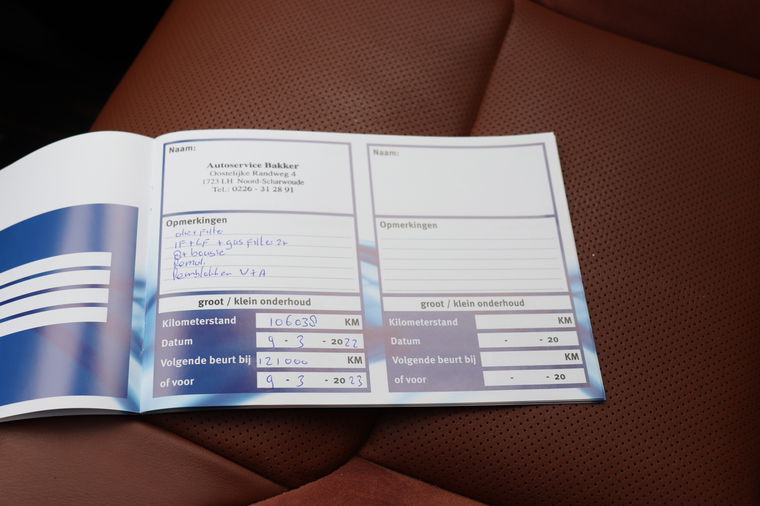 Naam:
Autoservice Bakker
Oostelijke Randweg 4
1723 LH Noord-Scharwoude
Tel.: 0226 - 31 28 91
Opmerkingen
olie + filter
IF + LF + gasfilter 2x
8x bougie
Remol.
Remblokken V+A
groot / klein onderhoud
Kilometerstand 106038 KM
Datum 9 - 3 - 2022
Volgende beurt bij 121000 KM
of voor 9 - 3 - 2023
Naam:
Opmerkingen
groot / klein onderhoud
Kilometerstand KM
Datum - - 20
Volgende beurt bij KM
of voor - - 20